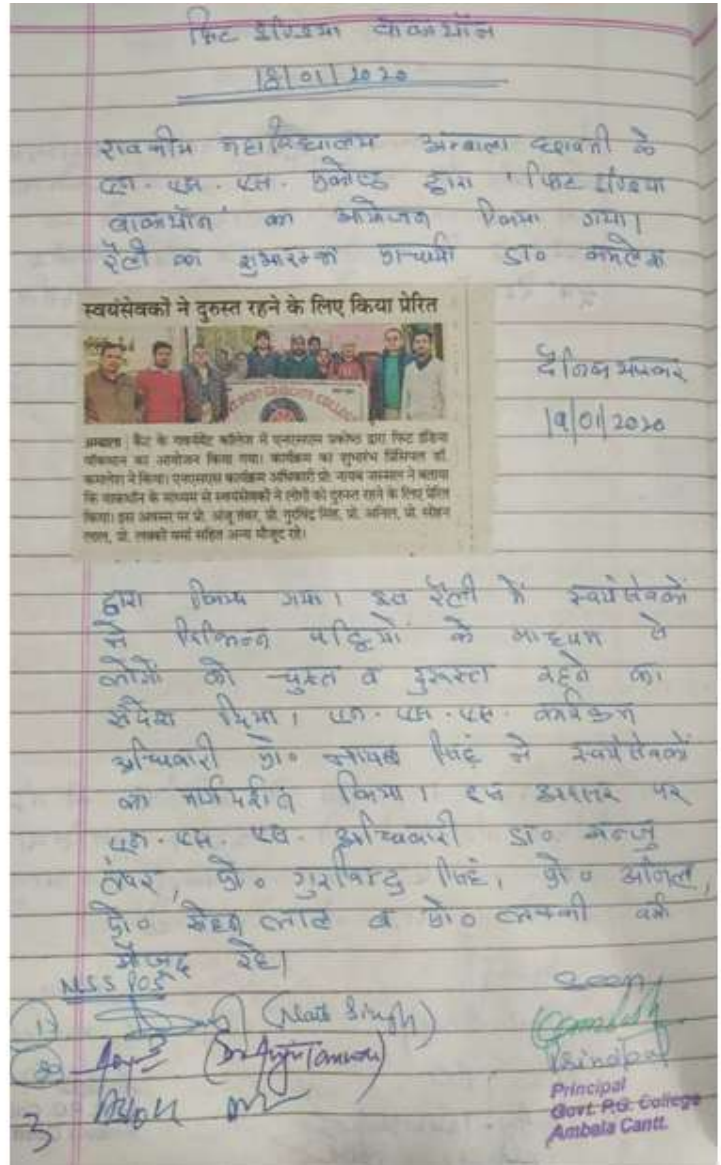 फिट इण्डिया वाकथॉन
18/01/2020
राजकीय महाविद्यालय अम्बाला छावनी के
एन. एस. एस. प्रकोष्ठ द्वारा 'फिट इण्डिया
वाकथॉन' का आयोजन किया गया।
रैली का शुभारम्भ प्राचार्या डा० कमलेश
स्वयंसेवकों ने दुरुस्त रहने के लिए किया प्रेरित
अम्बाला | कैंट के गवर्नमेंट कॉलेज में एनएसएस प्रकोष्ठ द्वारा फिट इंडिया
वॉकथान का आयोजन किया गया। कार्यक्रम का शुभारंभ प्रिंसिपल डॉ.
कमलेश ने किया। एनएसएस कार्यक्रम अधिकारी प्रो. नायब जास्सल ने बताया
कि वाकथॉन के माध्यम से स्वयंसेवकों ने लोगों को दुरुस्त रहने के लिए प्रेरित
किया। इस अवसर पर प्रो. अंजू तंवर, प्रो. गुरविंद्र सिंह, प्रो. अनिल, प्रो. सोहन
लाल, प्रो. लक्की वर्मा सहित अन्य मौजूद रहे।
दैनिक भास्कर
19/01/2020
द्वारा किया गया। इस रैली में स्वयंसेवकों
ने विभिन्न पट्टियों के माध्यम से
लोगों को चुस्त व दुरुस्त रहने का
संदेश दिया। एन. एस. एस. कार्यक्रम
अधिकारी प्रो० नायब सिंह ने स्वयंसेवकों
का मार्गदर्शन किया। इस अवसर पर
एन. एस. एस. अधिकारी डा० अन्जु
तंवर, प्रो० गुरविन्द्र सिंह, प्रो० अनिल,
प्रो० सोहन लाल व प्रो० लक्की वर्मा
मौजूद रहे।
N.S.S POS
1) (Naib Singh)
2) (Dr Anju Tanwar)
3
Seen
Principal
Principal
Govt. P.G. College
Ambala Cantt.